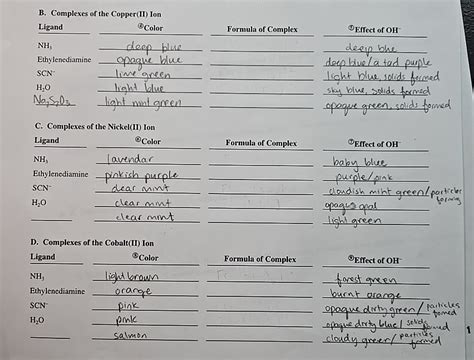 B. Complexes of the Copper(II) Ion
Ligand ④Color Formula of Complex ①Effect of OH⁻
NH₃ deep blue deep blue
Ethylenediamine opaque blue deep blue/a tad purple
SCN⁻ lime green light blue, solids formed
H₂O light blue sky blue, solids formed
Na₂S₂O₃ light mint green opaque green, solids formed
C. Complexes of the Nickel(II) Ion
Ligand Color Formula of Complex ⑦Effect of OH⁻
NH₃ lavendar baby blue
Ethylenediamine pinkish purple purple/pink
SCN⁻ clear mint cloudish mint green/particles forming
H₂O clear mint opaque opal
clear mint light green
D. Complexes of the Cobalt(II) Ion
Ligand Color Formula of Complex Effect of OH⁻
NH₃ light brown forest green
Ethylenediamine orange burnt orange
SCN⁻ pink opaque dirty green/particles formed
H₂O pink opaque dirty blue/solids formed
salmon cloudy green/particles formed